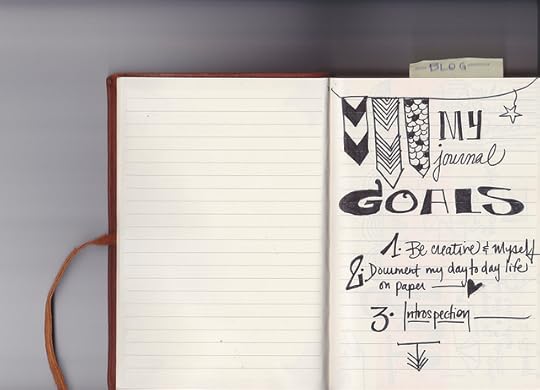 BLOG
MY
journal
GOALS
1. Be creative & myself
2. Document my day to day life
on paper
3. Introspection